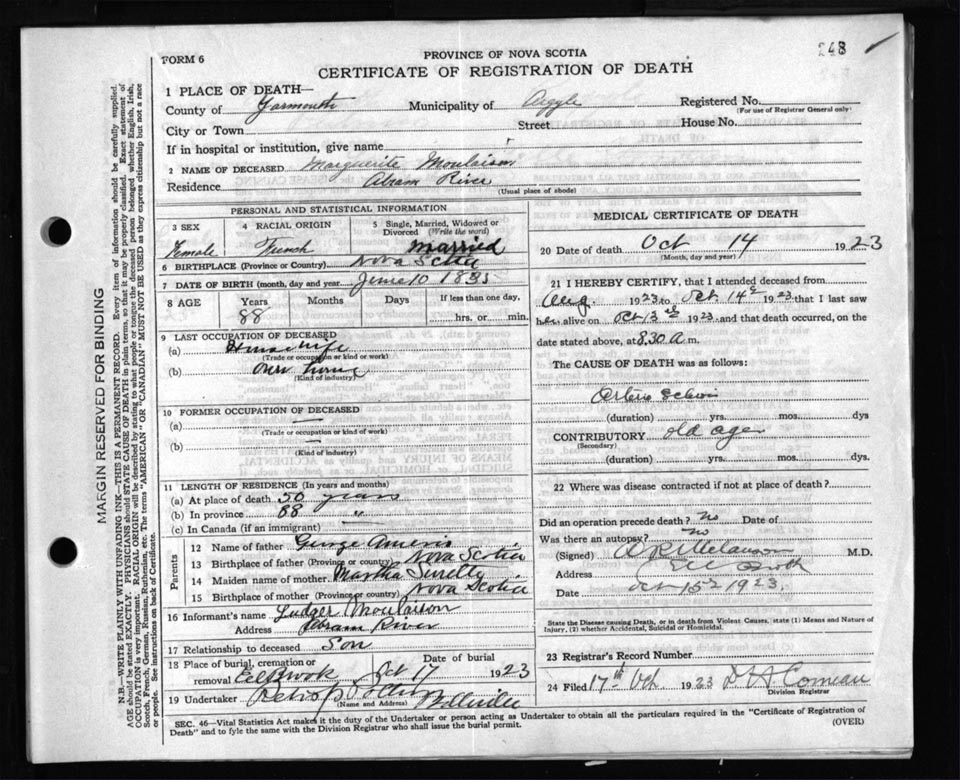 248
FORM 6
PROVINCE OF NOVA SCOTIA
CERTIFICATE OF REGISTRATION OF DEATH
1 PLACE OF DEATH—
County of Yarmouth Municipality of Argyle Registered No.
(For use of Registrar General only)
City or Town Street House No.
If in hospital or institution, give name
2 NAME OF DECEASED Marguerite Moulaison
Residence Abram River
(Usual place of abode)
PERSONAL AND STATISTICAL INFORMATION
3 SEX 4 RACIAL ORIGIN 5 Single, Married, Widowed or Divorced (Write the word)
Female French married
6 BIRTHPLACE (Province or Country) Nova Scotia
7 DATE OF BIRTH (month, day and year) June 10 1835
8 AGE Years Months Days If less than one day,
88 hrs. or min.
9 LAST OCCUPATION OF DECEASED
(a) Housewife
(Trade or occupation or kind or work)
(b) Own home
(Kind of industry)
10 FORMER OCCUPATION OF DECEASED
(a) —
(Trade or occupation or kind of work)
(b) —
(Kind of industry)
11 LENGTH OF RESIDENCE (In years and months)
(a) At place of death 50 years
(b) In province 88 "
(c) In Canada (if an immigrant)
Parents
12 Name of father George
13 Birthplace of father (Province or country) Nova Scotia
14 Maiden name of mother Martha
15 Birthplace of mother (Province or country) Nova Scotia
16 Informant's name Ludger Moulaison
Address Abram River
17 Relationship to deceased Son
18 Place of burial, cremation or removal Eel Brook Date of burial Oct 17 1923
19 Undertaker
(Name and Address)
MEDICAL CERTIFICATE OF DEATH
20 Date of death Oct 14 1923
(Month, day and year)
21 I HEREBY CERTIFY, that I attended deceased from
Aug. 1923 to Oct. 14th 1923 that I last saw
her alive on Oct 13th 1923 and that death occurred, on
date stated above, at 8.30 a.m.
The CAUSE OF DEATH was as follows:
Arterio
(duration) yrs. mos. dys
CONTRIBUTORY old age
(Secondary)
(duration) yrs. mos. dys.
22 Where was disease contracted if not at place of death?
Did an operation precede death? no Date of
Was there an autopsy? no
(Signed) M.D.
Address Eel Brook
Date Oct 15 1923.
State the Disease causing Death, or in death from Violent Causes, state (1) Means and Nature of
Injury, (2) whether Accidental, Suicidal or Homicidal.
23 Registrar's Record Number
24 Filed 17th Oct. 1923 Comeau
Division Registrar
SEC. 46—Vital Statistics Act makes it the duty of the Undertaker or person acting as Undertaker to obtain all the particulars required in the "Certificate of Registration of
Death" and to fyle the same with the Division Registrar who shall issue the burial permit.
(OVER)
MARGIN RESERVED FOR BINDING
N.B.—WRITE PLAINLY WITH UNFADING INK—THIS IS A PERMANENT RECORD. Every item of information should be carefully supplied.
AGE should be stated EXACTLY. PHYSICIANS should STATE CAUSE OF DEATH in plain terms, so that it may be properly classified. Exact statement of
OCCUPATION is very important. RACIAL ORIGIN will be described by stating to what people or tongue the deceased person belonged whether English, Irish,
Scotch, French, German, Russian, Ruthenian, etc. The terms "AMERICAN" OR "CANADIAN" MUST NOT BE USED as they express citizenship but not a race
or people. See instructions on back of Certificate.